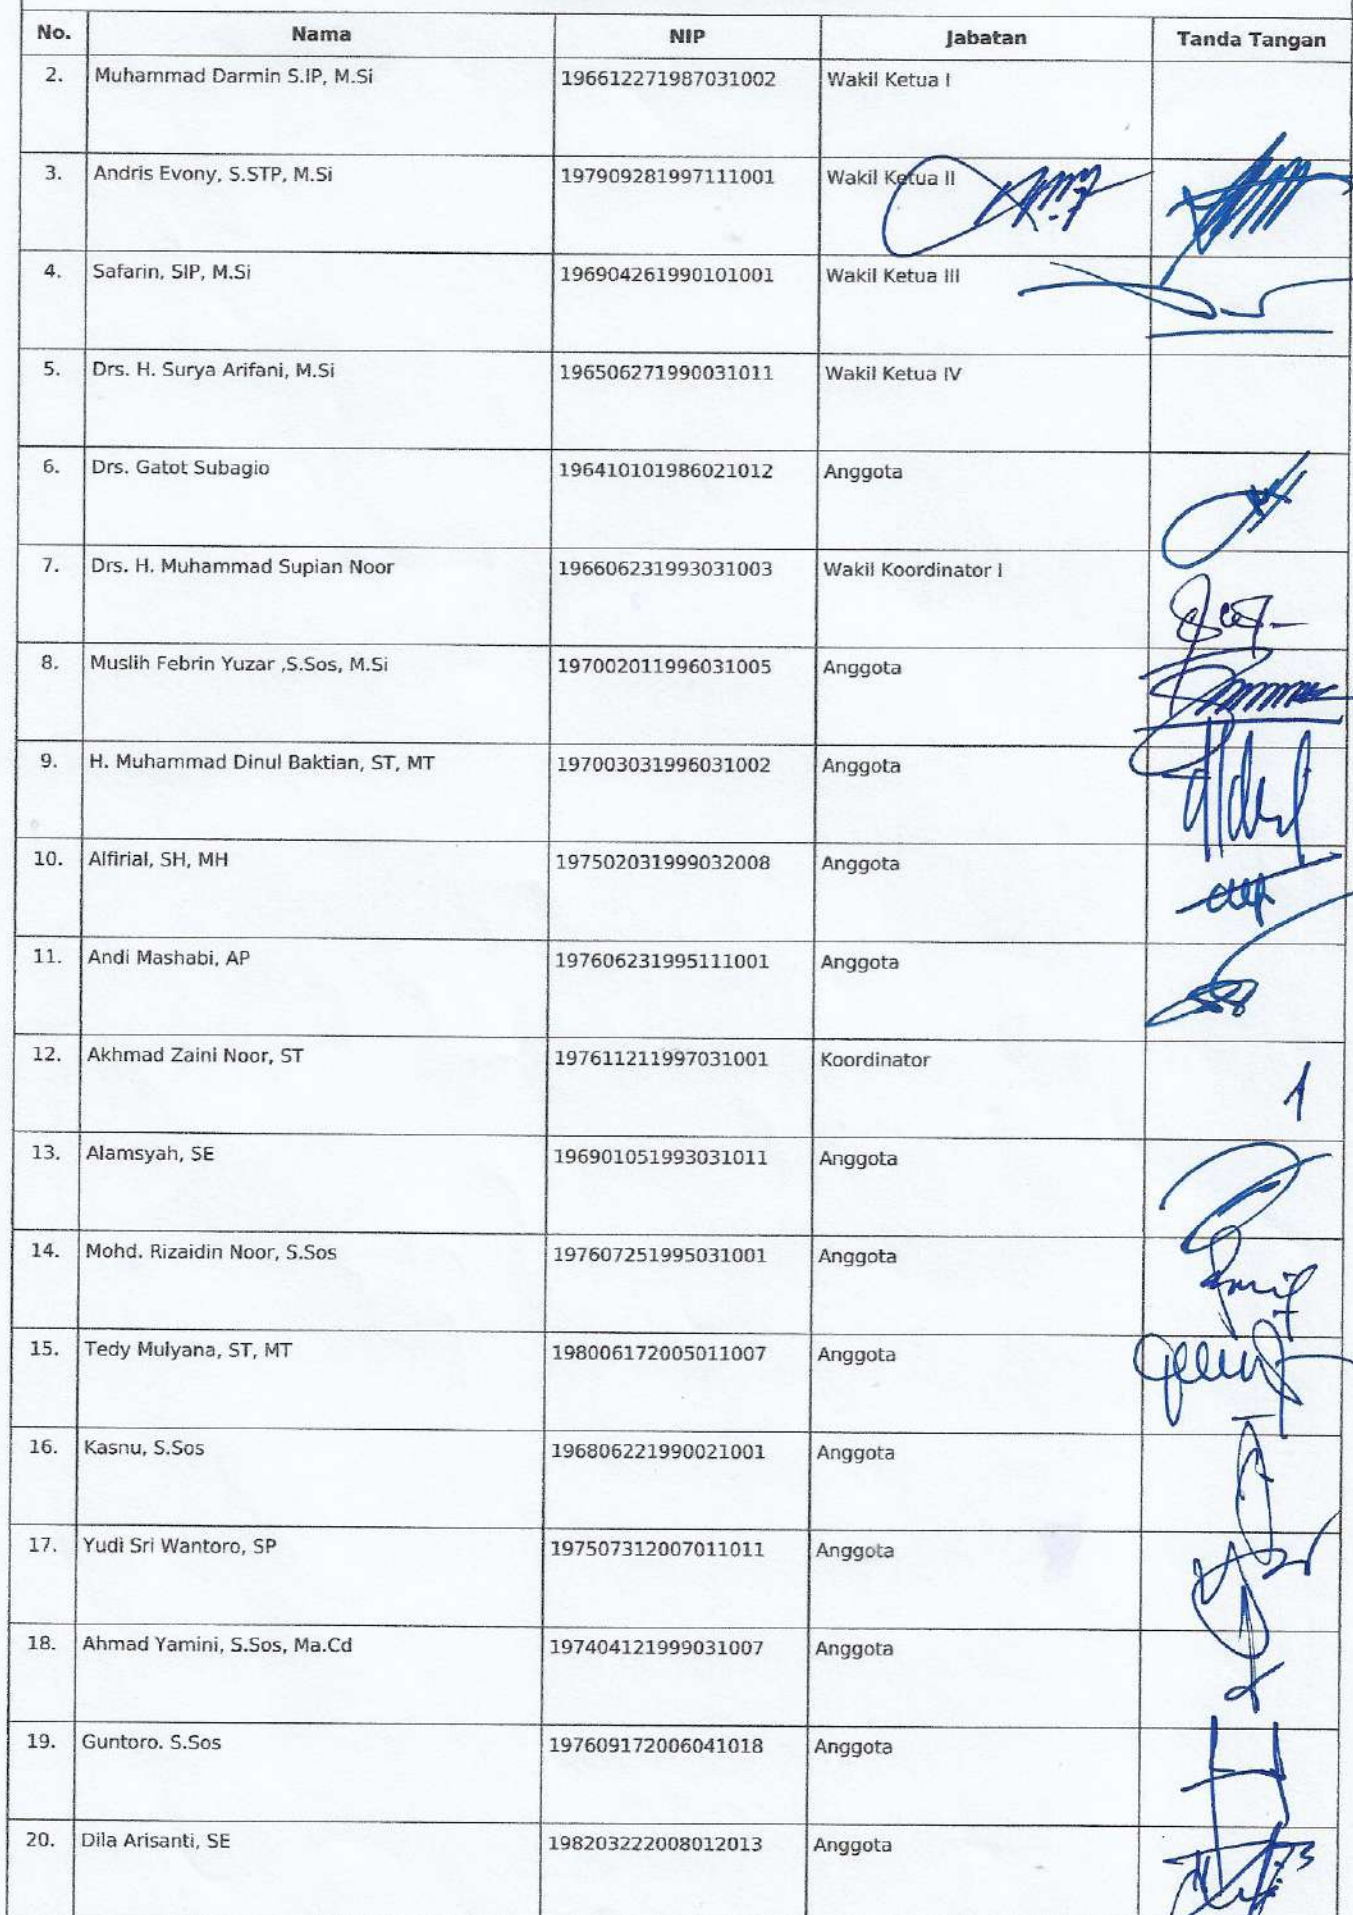 No. Nama NIP Jabatan Tanda Tangan
2. Muhammad Darmin S.IP, M.Si 196612271987031002 Wakil Ketua I
3. Andris Evony, S.STP, M.Si 197909281997111001 Wakil Ketua II
4. Safarin, SIP, M.Si 196904261990101001 Wakil Ketua III
5. Drs. H. Surya Arifani, M.Si 196506271990031011 Wakil Ketua IV
6. Drs. Gatot Subagio 196410101986021012 Anggota
7. Drs. H. Muhammad Supian Noor 196606231993031003 Wakil Koordinator I
8. Muslih Febrin Yuzar ,S.Sos, M.Si 197002011996031005 Anggota
9. H. Muhammad Dinul Baktian, ST, MT 197003031996031002 Anggota
10. Alfirial, SH, MH 197502031999032008 Anggota
11. Andi Mashabi, AP 197606231995111001 Anggota
12. Akhmad Zaini Noor, ST 197611211997031001 Koordinator
13. Alamsyah, SE 196901051993031011 Anggota
14. Mohd. Rizaidin Noor, S.Sos 197607251995031001 Anggota
15. Tedy Mulyana, ST, MT 198006172005011007 Anggota
16. Kasnu, S.Sos 196806221990021001 Anggota
17. Yudi Sri Wantoro, SP 197507312007011011 Anggota
18. Ahmad Yamini, S.Sos, Ma.Cd 197404121999031007 Anggota
19. Guntoro. S.Sos 197609172006041018 Anggota
20. Dila Arisanti, SE 198203222008012013 Anggota